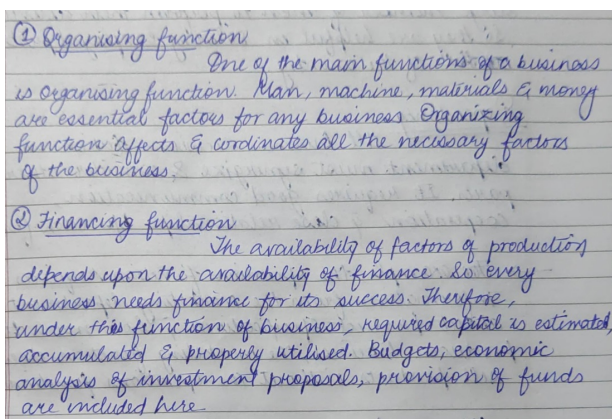 ① Organising function
One of the main functions of a business
is organising function. Man, machine, materials & money
are essential factors for any business Organizing
function affects & cordinates all the necissary factors
of the business.
② Financing function
The availability of factors of production
depends upon the availability of finance. So every
business needs finance for its success. Therefore,
under this function of business, required capital is estimated,
accumulated & properly utilised. Budgets, economic
analysis of investment proposals, provision of funds
are included here.